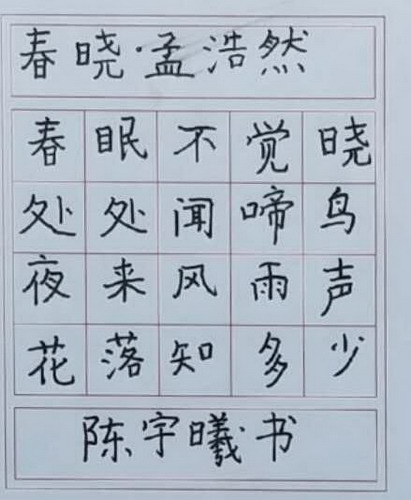 春晓·孟浩然
春眠不觉晓
处处闻啼鸟
夜来风雨声
花落知多少
陈宇曦书